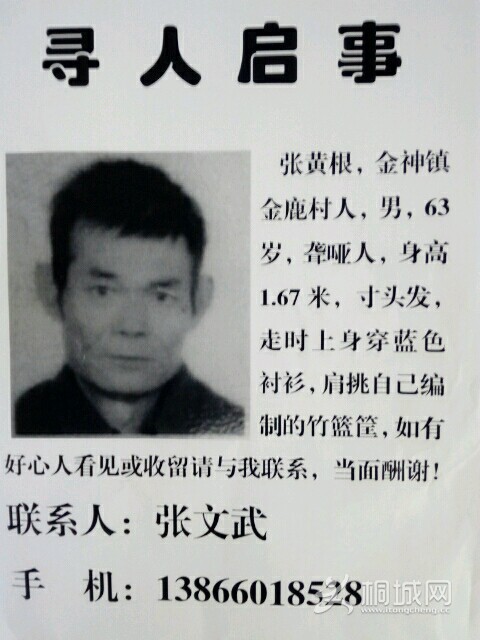 寻人启事
张黄根，金神镇
金鹿村人，男，63
岁，聋哑人，身高
1.67米，寸头发，
走时上身穿蓝色
衬衫，肩挑自己编
制的竹篮筐，如有
好心人看见或收留请与我联系，当面酬谢！
联系人：张文武
手 机：13866018528
桐城网
itongcheng.cc